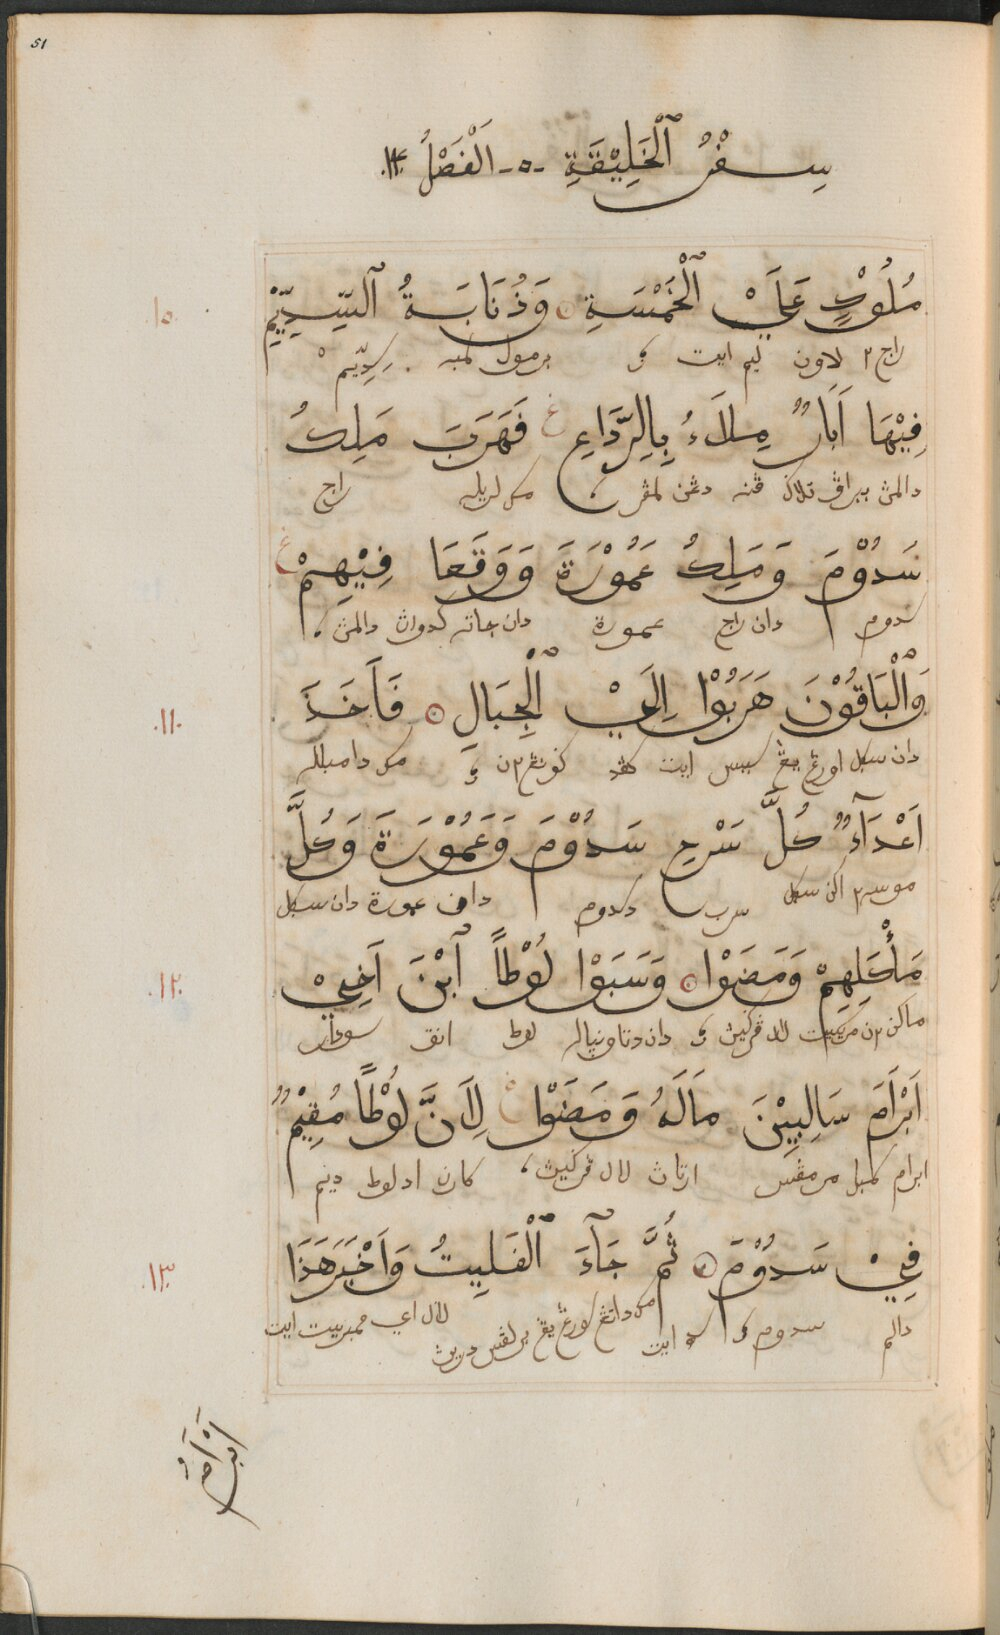 51
سِفْرُ ٱلْخَلِيْقَةِ -٥- اَلْفَصْلُ ١٤.
مُلُوْكٍ عَلَيْ ٱلْخَمْسَةِ ۞ وَذُنَابَةُ ٱلسِّدِّيْمِ
١٠
راج ٢ لاون ليم ايت برمول لمبه سدّيم
فِيْهَا اَبَارٌ مِلَاءُ بِالرَّدَاعِ غ فَهَرَبَ مَلِكُ
دالمڽ ببراڤ تلاݢ ڤنه دڠن لمڤر مك لاريله راج
سَدُوْمَ وَمَلِكُ عَمُوْرَةَ وَوَقَعَا فِيْهِمْ غ
سدوم دان راج عمورة دان جاته كدواڽ دالمڽ
وَٱلْبَاقُوْنَ هَرَبُوْا اِلَيْ ٱلْجِبَالِ ۞ فَاَخَذَ
.١١.
دان سكل اورڠ يڠ ايت ݢونڠ ٢ن مك دامبلله
اَعْدَآءٌ كُلَّ سَرْحِ سَدُوْمَ وَعَمُوْرَةَ وَكُلَّ
موسه ٢ اكن سكل سرب سدوم دان عمورة دان سكل
مَأْكَلِهِمْ وَمَضَوْا ۞ وَسَبَوْا لُوْطاً ٱبْنَ اَخِيْ
.١٢.
ماكن ٢ن مريكيت لال ڤركيڽ دان دتاونياله لوط انق سودار
اَبْرَامَ سَالِبِيْنَ مَالَهُ وَمَضَوْا غ لِاَنَّ لُوْطاً مُقِيْمٌ
ابرام سمبل مرمڤس ارتاڽ لال ڤركيڽ كارن اد لوط ديم
فِيْ سَدُوْمَ ۞ ثُمَّ جَآءَ ٱلْفَلِيتُ وَاَخْبَرَ هَذَا
.١٣.
دالم سدوم ايت مك داتڠ سورڠ يڠ برلڤس دريڽ لال اي ممبريت ايت
اَبْرَامَ